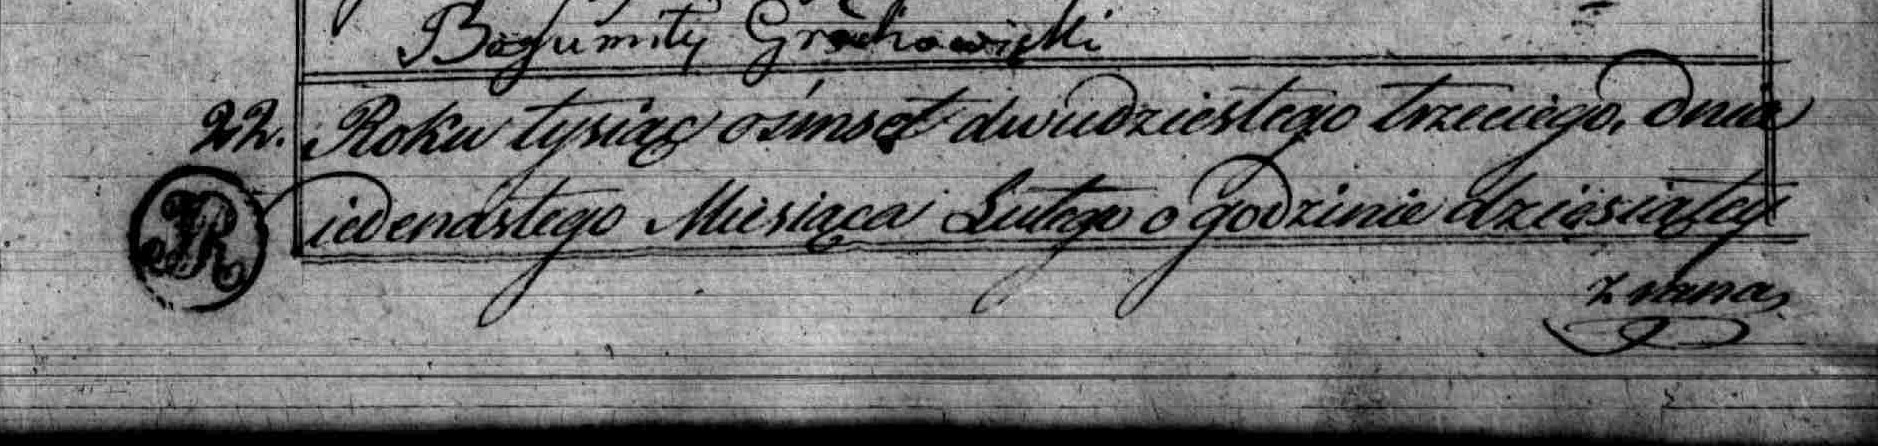 Bogumiły Grochowiski
22. Roku tysiąc ośmset dwudziestego trzeciego, dnia
JR iedenastego Miesiąca Lutego o godzinie dziesiątey
z rana,